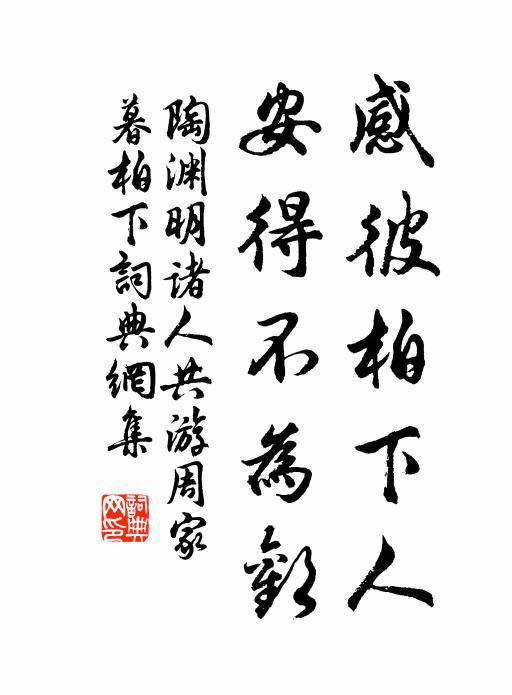 感彼柏下人
安得不為歡
陶渊明诸人共游周家
暮柏下詞典網集
詞典网印